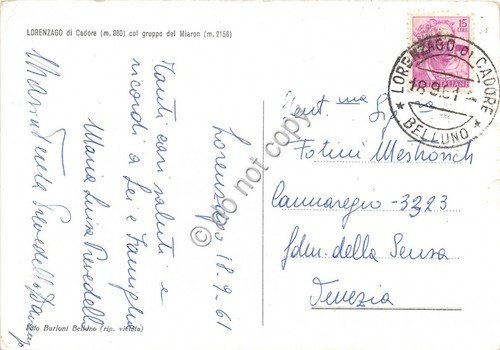 LORENZAGO di Cadore (m. 880) col gruppo del Miaron (m. 2156)
Lorenzago 18-9-61
Tanti cari saluti e
ricordi a Lei e Famiglia
Maria Luisa Prevedello
Prevedello
Foto Burloni Belluno (rip. vietata)
15
LIRE
ITALIANE
LORENZAGO DI CADORE
18.9.61
* BELLUNO *
Gent.ma Sig.na
Fotini Meshorsch
Cannaregio - 3323
Fdm. della Sensa
Venezia
© do not copy